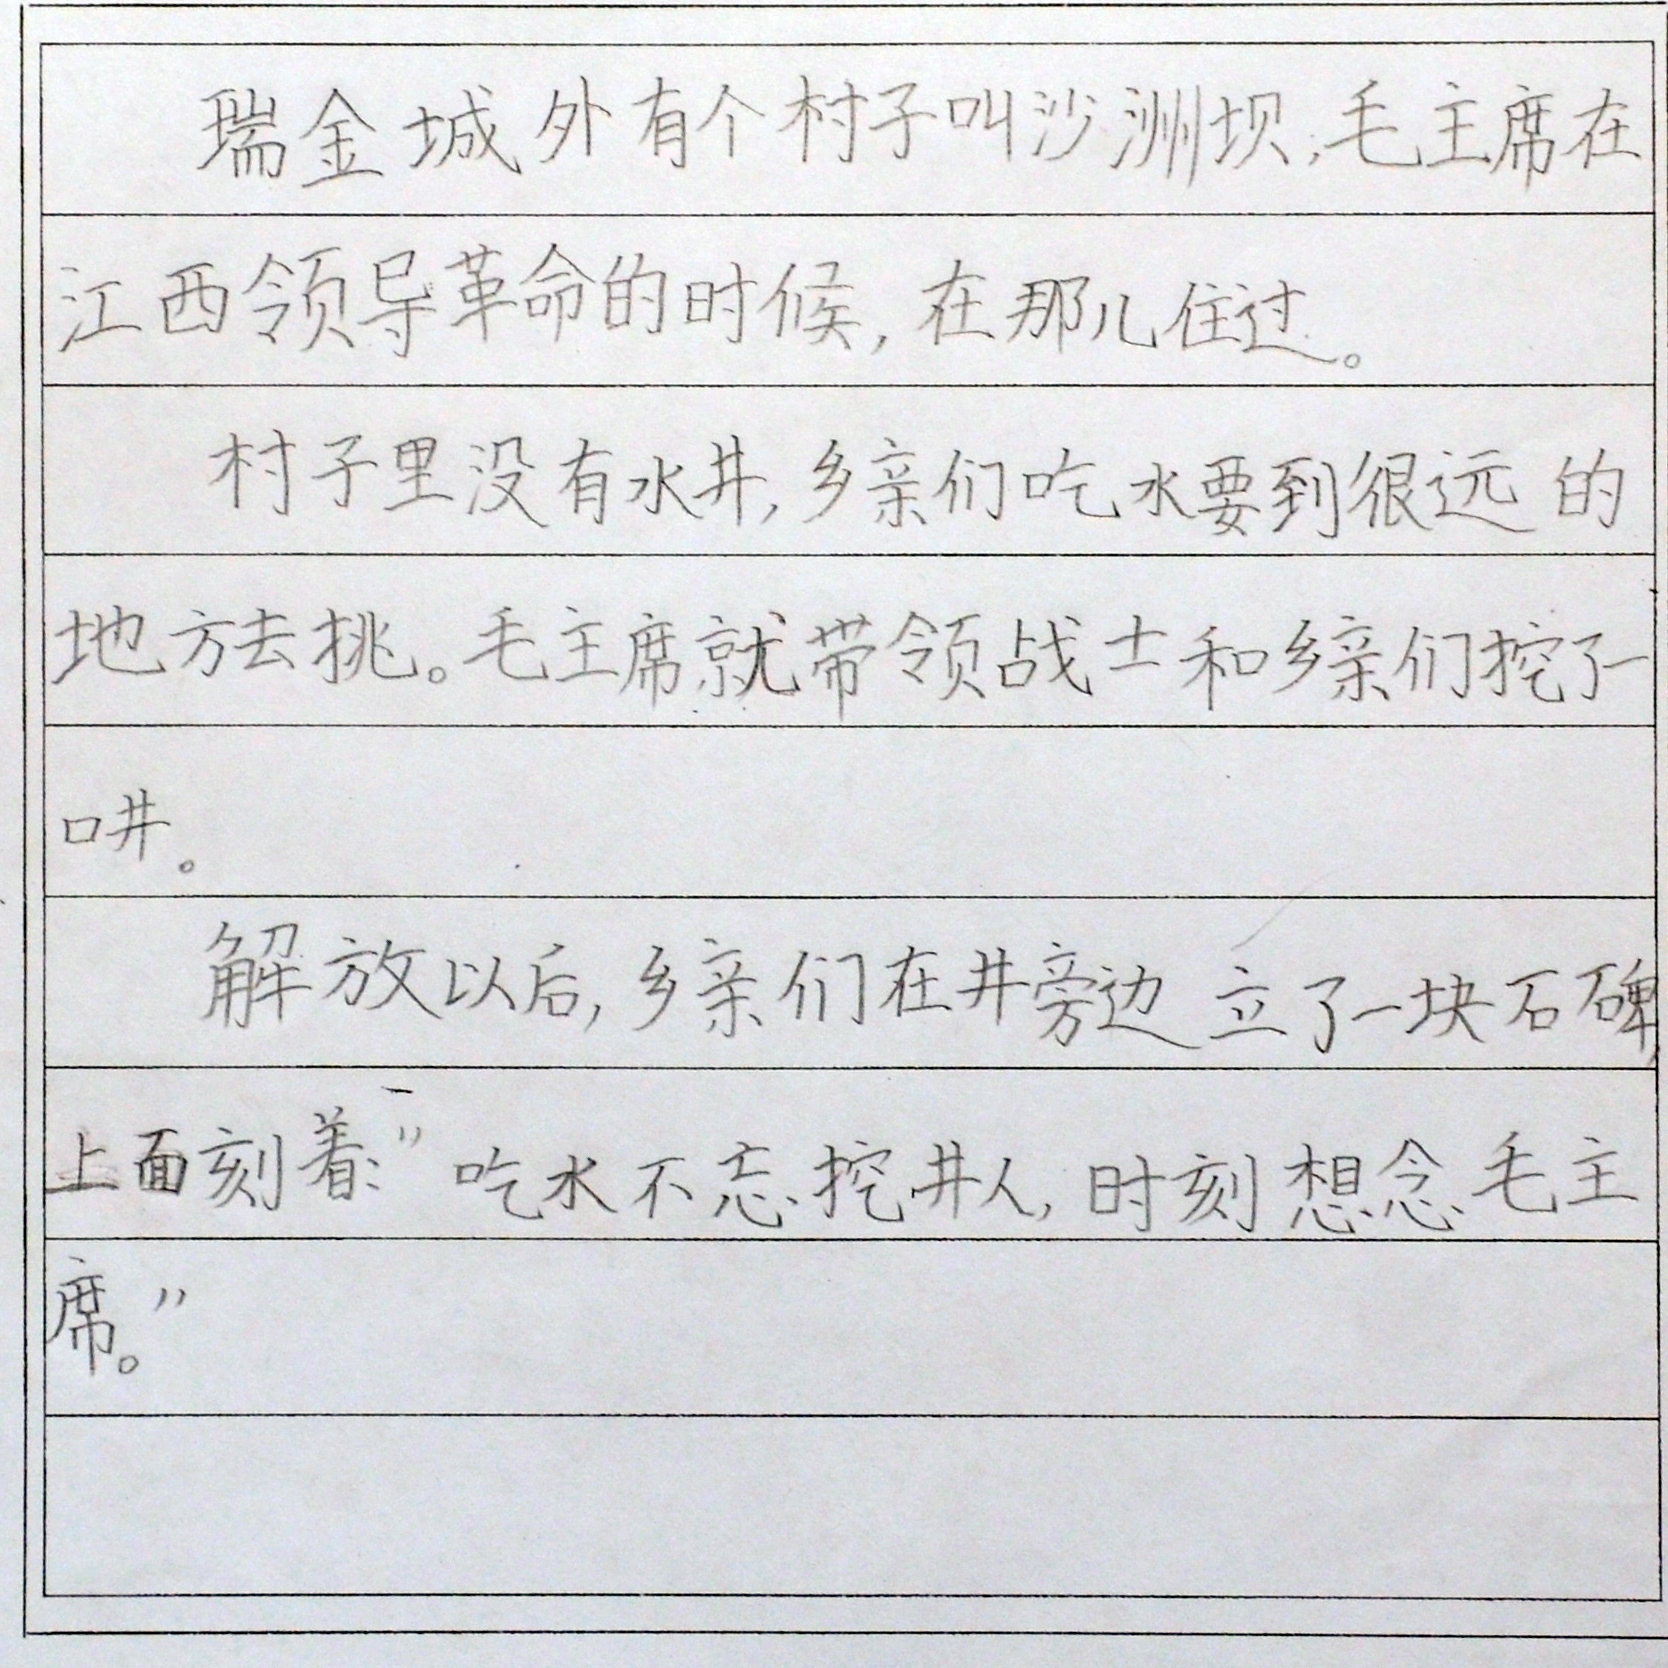 瑞金城外有个村子叫沙洲坝,毛主席在
江西领导革命的时候,在那儿住过。
村子里没有水井,乡亲们吃水要到很远的
地方去挑。毛主席就带领战士和乡亲们挖了一
口井。
解放以后,乡亲们在井旁边立了一块石碑,
上面刻着:”吃水不忘挖井人,时刻想念毛主
席。”